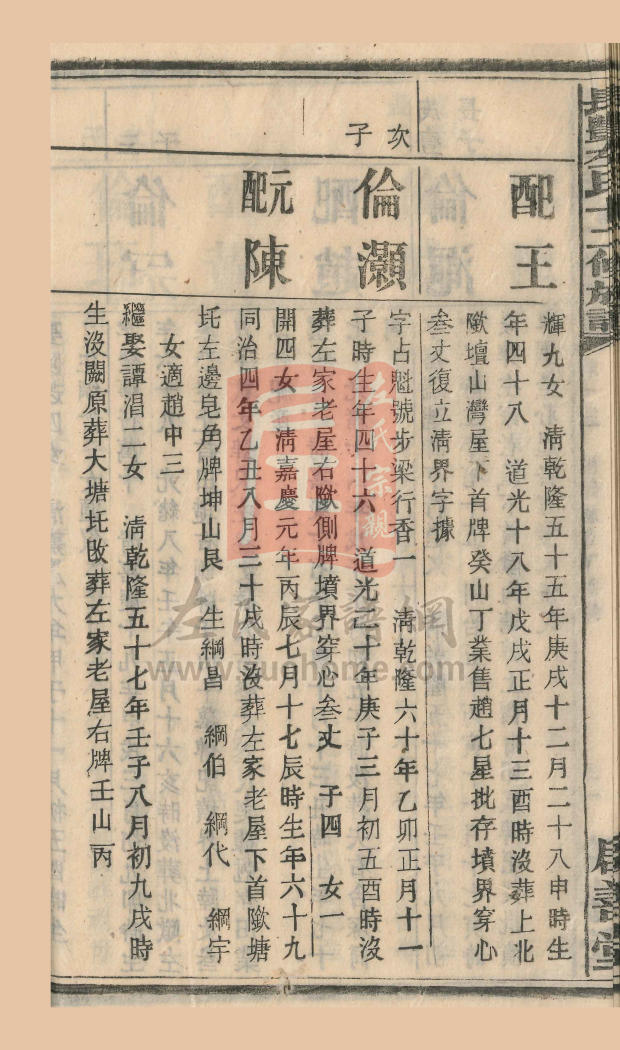 長豐左氏十二修族譜
配王
輝九女 清乾隆五十五年庚戌十二月二十八申時生
年四十八 道光十八年戊戌正月十三酉時沒葬上北
歐壇山灣屋下首牌癸山丁業售趙七星批存墳界穿心
叁丈復立淸界字據
次子
倫灝
字占魁號步梁行香一 清乾隆六十年乙卯正月十一
子時生年四十六 道光二十年庚子三月初五酉時沒
葬左家老屋右歐側牌墳界穿心叁丈 子四 女一
元配陳
開四女 清嘉慶元年丙辰七月十七辰時生年六十九
同治四年乙丑八月三十戌時沒葬左家老屋下首歐塘
圫左邊皂角牌坤山艮 生綱昌 綱伯 綱代 綱宇
女適趙中三
繼娶譚淐二女 清乾隆五十七年壬子八月初九戌時
生沒闕原葬大塘圫改葬左家老屋右牌壬山丙
左氏宗親
左氏家譜網
www.zuohome.com